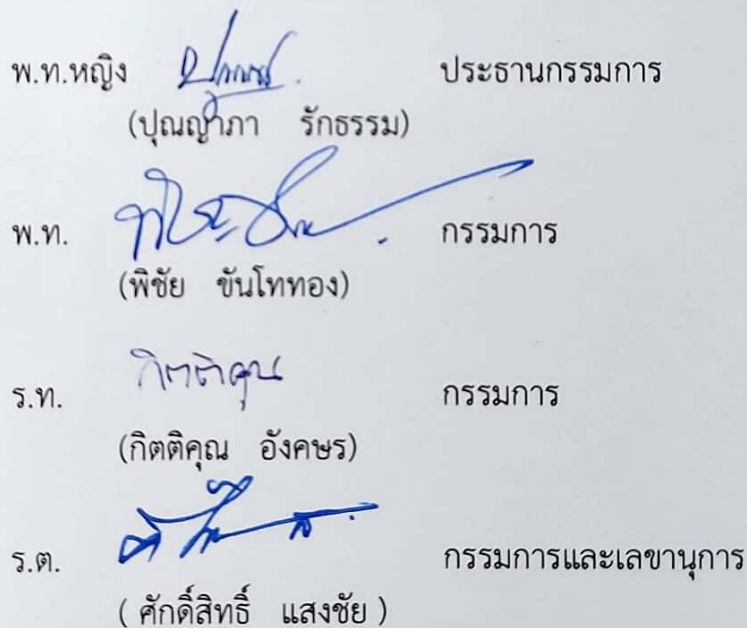 พ.ท.หญิง ประธานกรรมการ
(ปุณญาภา รักธรรม)
พ.ท. กรรมการ
(พิชัย ขันโททอง)
ร.ท. กิตติคุณ กรรมการ
(กิตติคุณ อังคษร)
ร.ต. กรรมการและเลขานุการ
( ศักดิ์สิทธิ์ แสงชัย )